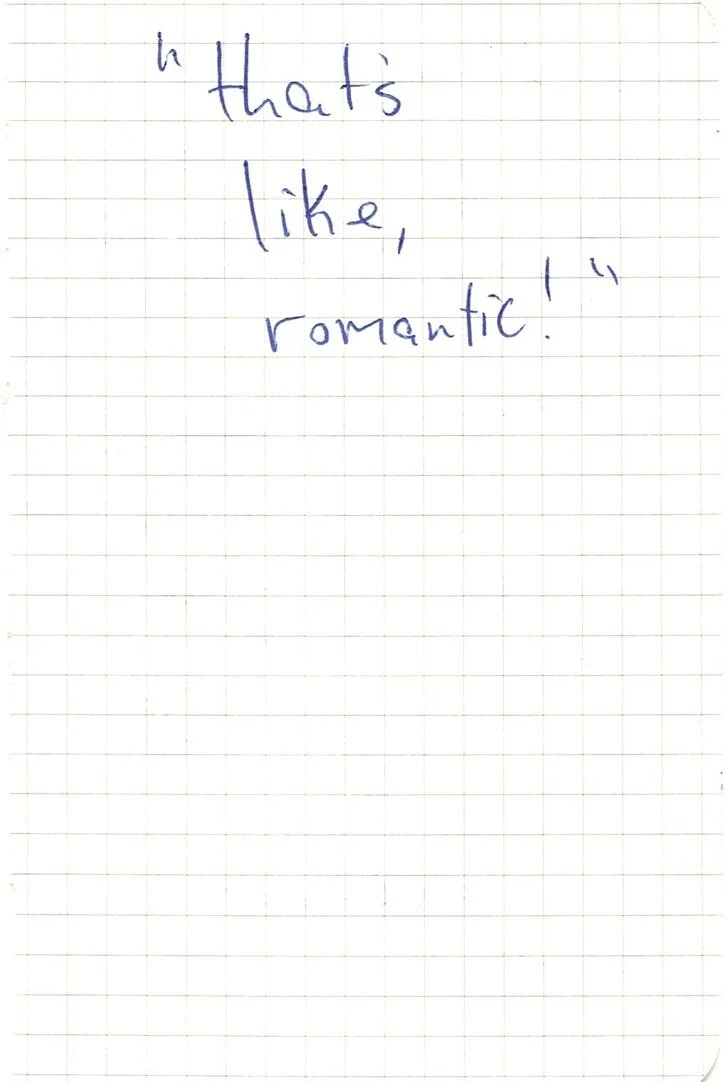 "that's
like,
romantic!"